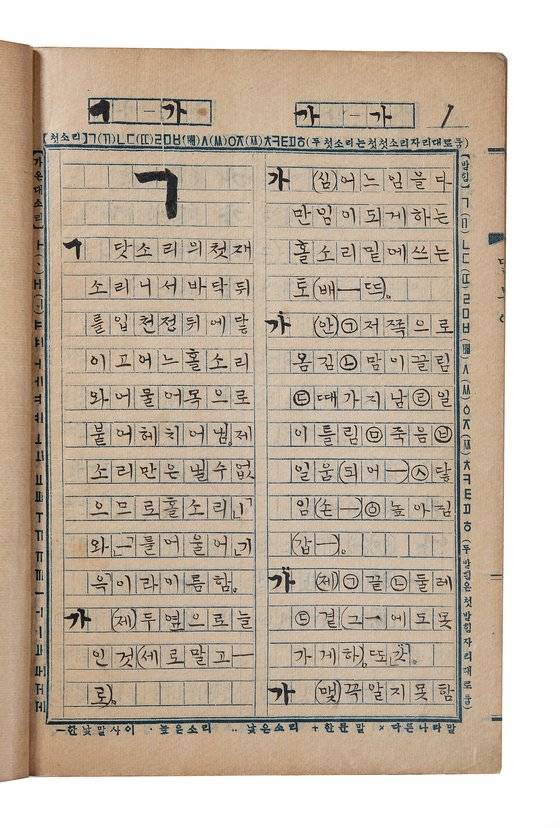 ㄱ — 가
가 — 가
1
【첫소리】ㄱ(ㄲ)ㄴㄷ(ㄸ)ㄹㅁㅂ(ㅃ)ㅅ(ㅆ)ㅇㅈ(ㅉ)ㅊㅋㅌㅍㅎ(두첫소리는첫첫소리자리대로둠)
ㄱ
ㄱ 닷소리의첫재
소리니서바닥뒤
를입천정뒤에닿
이고어느홀소리
와어물어목으로
불어헤치어냄。제
소리만은낼수없
으므로홀소리「ㅣ」
와「ㅡ」를어울어「기
윽」이라이름함。
가 (제)두옆으로늘
인것(세로말고—
로)。
가 (심)어느임을다
만임이되게하는
홀소리밑에쓰는
토(배—뜨)。
가 (안)㉠저쪽으로
몸김㉡맘이끌림
㉢때가지남㉣일
이틀림㉤죽음㉥
일움(되어—)㉦닿
임(손—)㉧높아짐
(값—)。
가 (제)㉠끝㉡둘레
㉢곁(그—에도못
가게하)。또「갓」。
가 (맺)꼭알지못함
【가온대소리】
【받침】ㄱ(ㄲ)ㄴㄷ(ㄸ)ㄹㅁㅂ(ㅃ)ㅅ(ㅆ)ㅇㅈ(ㅉ)ㅊㅋㅌㅍㅎ(두받침은첫받침자리대로둠)
—한낱말사이 ·높은소리 ‥낮은소리 +한문말 ×다른나라말